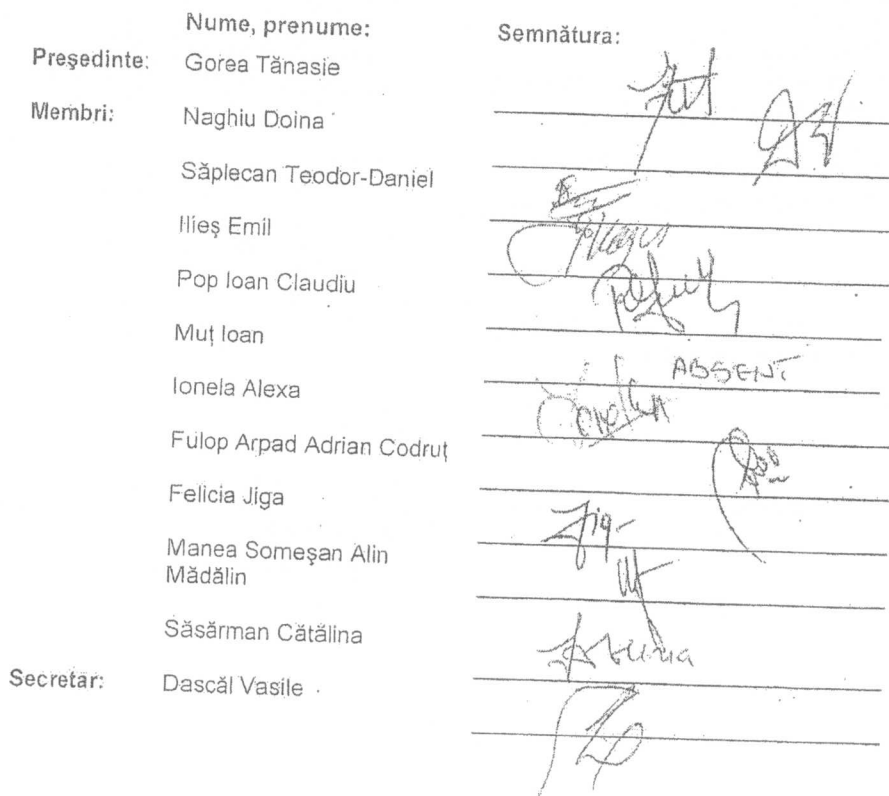 Nume, prenume: Semnătura:
Preşedinte: Gorea Tănasie
Membri: Naghiu Doina
Săplecan Teodor-Daniel
Ilieş Emil
Pop Ioan Claudiu
Muţ Ioan
ABSENT
Ionela Alexa
Fulop Arpad Adrian Codruţ
Felicia Jiga
Manea Someşan Alin
Mădălin
Săsărman Cătălina
Secretar: Dascăl Vasile